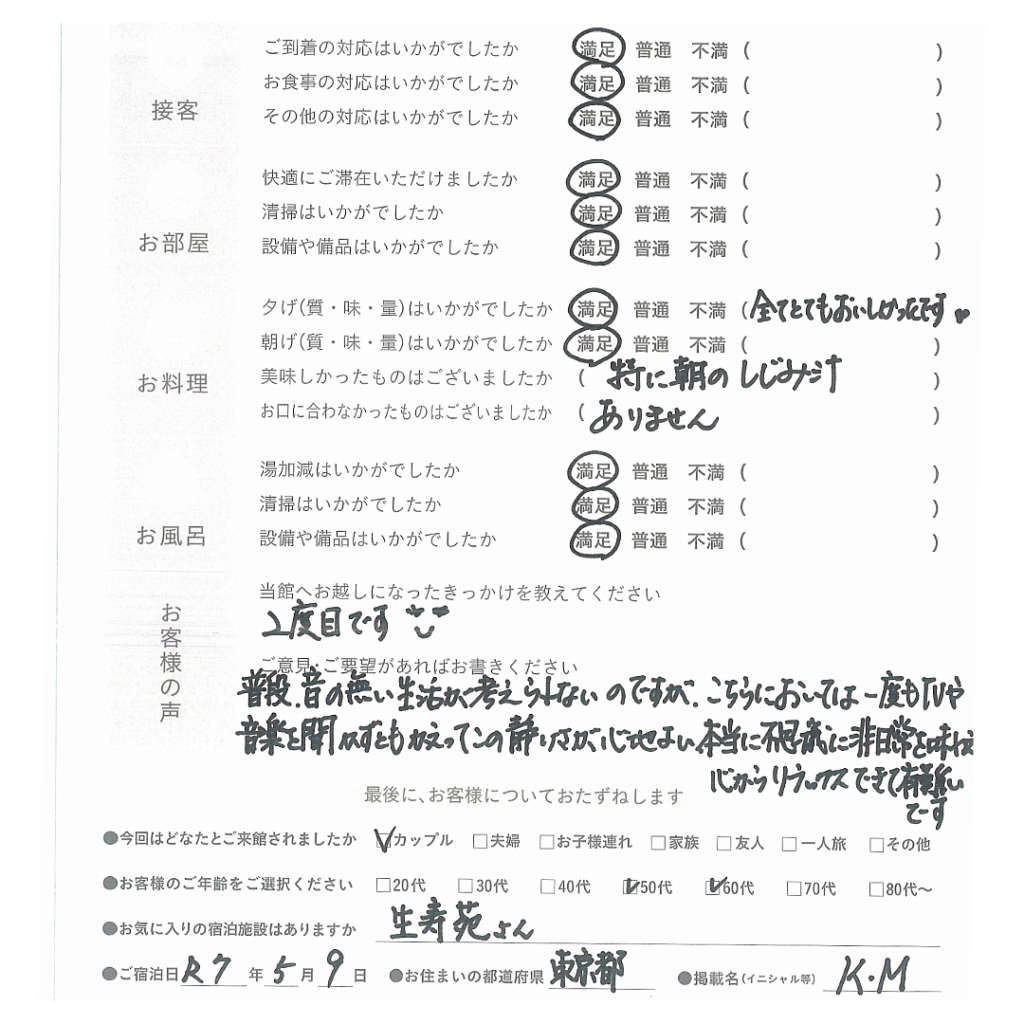 接客
ご到着の対応はいかがでしたか 満足 普通 不満 ( )
お食事の対応はいかがでしたか 満足 普通 不満 ( )
その他の対応はいかがでしたか 満足 普通 不満 ( )
お部屋
快適にご滞在いただけましたか 満足 普通 不満 ( )
清掃はいかがでしたか 満足 普通 不満 ( )
設備や備品はいかがでしたか 満足 普通 不満 ( )
お料理
夕げ(質・味・量)はいかがでしたか 満足 普通 不満 (全てとてもおいしかったです♥
朝げ(質・味・量)はいかがでしたか 満足 普通 不満 ( )
美味しかったものはございましたか ( 特に朝のしじみ汁 )
お口に合わなかったものはございましたか ( ありません )
お風呂
湯加減はいかがでしたか 満足 普通 不満 ( )
清掃はいかがでしたか 満足 普通 不満 ( )
設備や備品はいかがでしたか 満足 普通 不満 ( )
お客様の声
当館へお越しになったきっかけを教えてください
2度目です
ご意見・ご要望があればお書きください
普段、音の無い生活が考えられないのですが、こちらにおいては一度もTVや
音楽を聞かずともかえってこの静けさが心地よい、本当に不思議に非日常を味わえ
心からリラックスできて有難い
です
最後に、お客様についておたずねします
●今回はどなたとご来館されましたか ☑カップル □夫婦 □お子様連れ □家族 □友人 □一人旅 □その他
●お客様のご年齢をご選択ください □20代 □30代 □40代 ☑50代 ☑60代 □70代 □80代〜
●お気に入りの宿泊施設はありますか 生寿苑さん
●ご宿泊日 R7 年 5 月 9 日 ●お住まいの都道府県 東京都 ●掲載名(イニシャル等) K・M